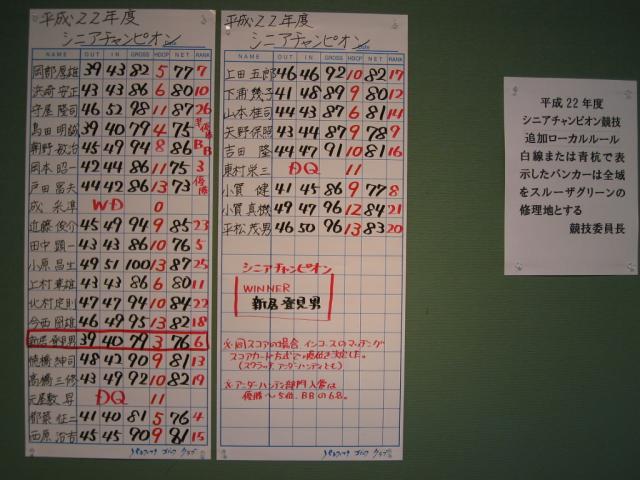 平成22年度
シニアチャンピオン
NAME OUT IN GROSS HDCP NET RANK
岡部 39 43 82 5 77 7
43 43 86 6 80 10
守屋 隆司 46 52 98 11 87 26
島田 明誠 39 40 79 4 75 準優勝
朝野 敏治 45 49 94 8 86 BB
岡本 昭一 42 44 86 11 75 3
戸田 富夫 42 44 86 13 73 優勝
成 采準 WD 0
近藤 俊介 45 49 94 9 85 23
田中 顕一 43 43 86 10 76 5
小原 昌生 49 51 100 13 87 25
上村 43 43 86 6 80 11
北村 定則 47 47 94 10 84 22
今西 国雄 46 49 95 13 82 18
新居 登見男 39 40 79 3 76 6
紳司 48 42 90 9 81 13
高橋 三修 43 49 92 10 82 19
DQ 11
都築 征二 41 40 81 5 76 4
西原 45 45 90 9 81 15
平成22年度
シニアチャンピオン
NAME OUT IN GROSS HDCP NET RANK
上田 五郎 46 46 92 10 82 17
下浦 幾子 41 48 89 9 80 12
山本 桂司 44 43 87 6 81 14
矢野 保照 43 44 87 9 78 9
吉田 隆 44 47 91 10 81 16
東村 栄三 DQ 11
小賀 健 41 45 86 9 77 8
小賀 真機 49 47 96 12 84 21
平松 茂男 46 50 96 13 83 20
シニアチャンピオン
WINNER
新居 登見男
※同スコアの場合 インコースのマッチング
スコアカード方式で順位を決定した。
(スクラッチ、アンダーハンディとも)
※アンダーハンディ部門入賞は
優勝〜5位、BBの6名。
平成22年度
シニアチャンピオン競技
追加ローカルルール
白線または青杭で表
示したバンカーは全域
をスルーザグリーンの
修理地とする
競技委員長